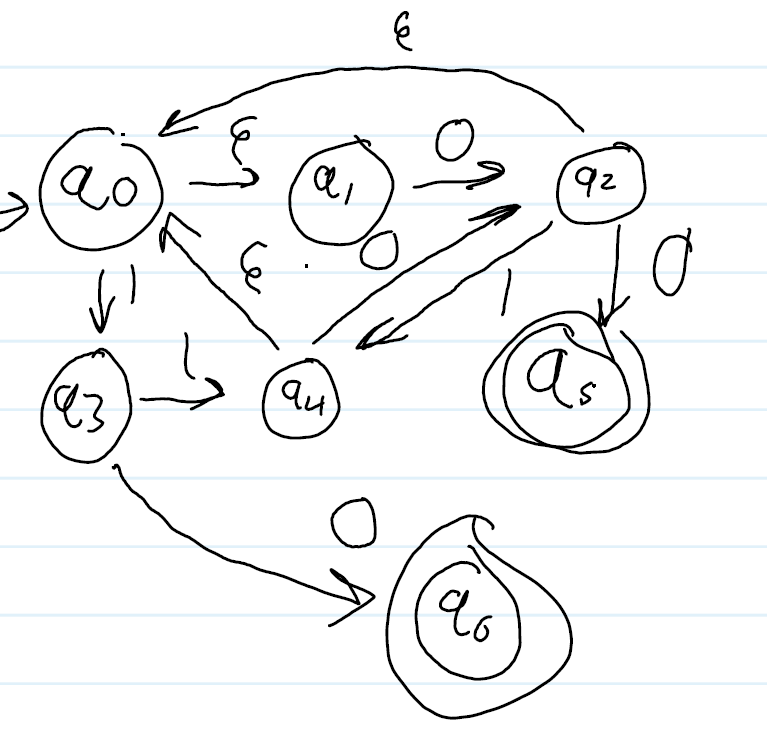 ε
q0 ε q1 0 q2
ε 0 1 0
1
1
q3 q4 q5
0
q6